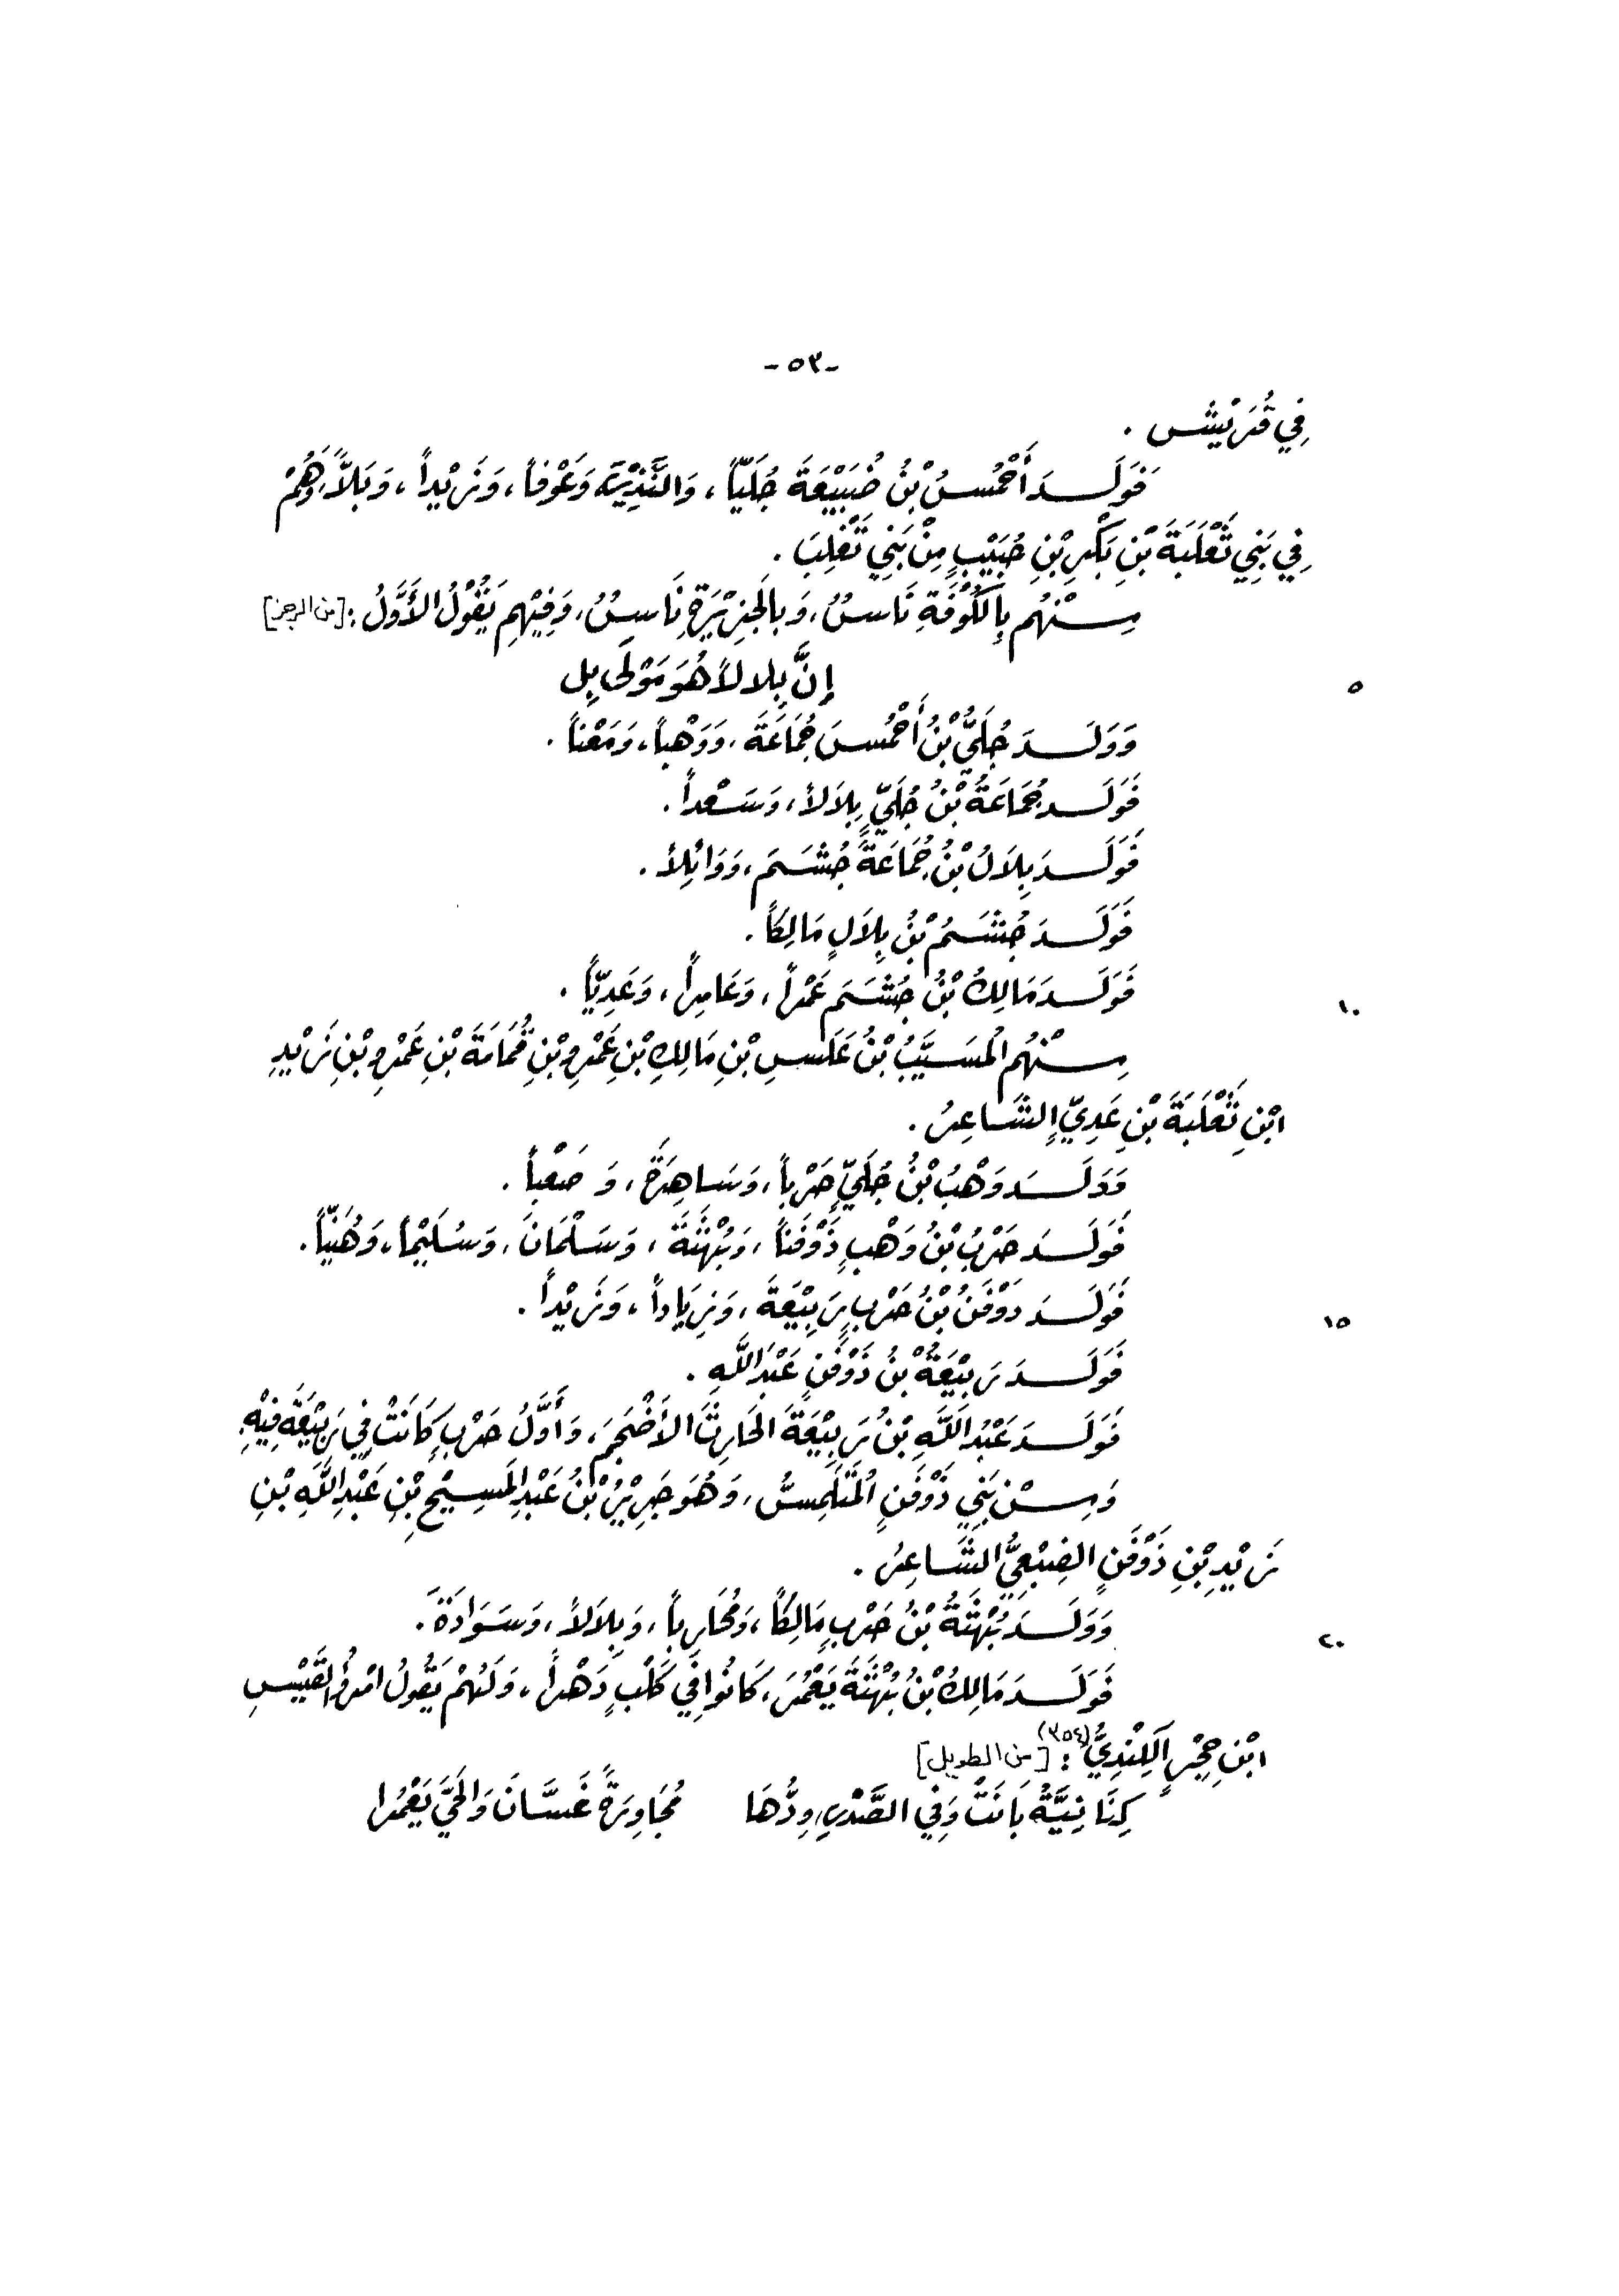 -٥٣-
فِي قُرَيْشٍ .
فَوَلَدَ أَحْمُسُ بْنُ ضُبَيْعَةَ جُلَيّاً، وَالنَّذِيرَ، وَعَوْفاً، وَزَيْداً، وَبَلاًّ، وَهُمْ
فِي بَنِي ثَعْلَبَةَ بْنِ بَكْرِ بْنِ حُبَيْبٍ مِنْ بَنِي تَغْلِبَ .
مِنْهُم بِالكُوْفَةِ نَاسٌ، وَبِالجَزِيْرَةِ نَاسٌ، وَفِيْهِم يَقُوْلُ الأَوَّلُ : [من الرجز]
إِنَّ بِلالاً هُوَ مَوْلَى بِل
٥
وَوَلَدَ جُلَيُّ بْنُ أَحْمُسَ جُمَاعَةَ، وَوَهْباً، وَمَعْناً .
فَوَلَدَ جُمَاعَةُ بْنُ جُلَيٍّ بِلاَلاً، وَسَعْداً .
فَوَلَدَ بِلاَلُ بْنُ جُمَاعَةَ جُشَمَ، وَوَائِلاً .
فَوَلَدَ جُشَمُ بْنُ بِلاَلٍ مَالِكاً .
فَوَلَدَ مَالِكُ بْنُ جُشَمَ عَمْراً، وَعَامِراً، وَعَدِيّاً .
١٠
مِنْهُم الْمُسَيَّبُ بْنُ عَلَسِ بْنِ مَالِكِ بْنِ عَمْرِو بْنِ قُمَامَةَ بْنِ عَمْرِو بْنِ زَيْدِ
ابْنِ ثَعْلَبَةَ بْنِ عَدِيٍّ الشَّاعِرُ .
وَوَلَدَ وَهْبُ بْنُ جُلَيٍّ حَرْباً، وَسَاهِرَةَ، وَ صَعْباً .
فَوَلَدَ حَرْبُ بْنُ وَهْبٍ دَوْفَناً، وَبُهْثَةَ، وَسَلْمَانَ، وَسُلَيْماً، وَهُنَيّاً .
فَوَلَدَ دَوْفَنُ بْنُ حَرْبٍ رَبِيْعَةَ، وَزِيَاداً، وَزَيْداً .
١٥
فَوَلَدَ رَبِيْعَةُ بْنُ دَوْفَنٍ عَبْدَ اللَّهِ .
فَوَلَدَ عَبْدُ اللَّهِ بْنُ رَبِيْعَةَ الحَارِثَ الأَضْجَمَ، وَأَوَّلُ حَرْبٍ كَانَتْ فِي رَبِيْعَةَ فِيْهِ
وَمِنْ بَنِي دَوْفَنٍ الْمُتَلَمِّسُ، وَهُوَ جَرِيْرُ بْنُ عَبْدِ المَسِيْحِ بْنِ عَبْدِ اللَّهِ بْنِ
زَيْدِ بْنِ دَوْفَنٍ الضِبْعِيُّ الشَّاعِرُ .
وَوَلَدَ بُهْثَةُ بْنُ حَرْبٍ مَالِكاً، وَمُحَارِباً، وَبِلاَلاً، وَسَوَادَةَ .
٢٠
فَوَلَدَ مَالِكُ بْنُ بُهْثَةَ يَعْمُرَ، كَانُوا فِي كَلْبٍ دَهْراً، وَلَهُمْ يَقُولُ امْرُؤُ القَيْسِ
ابْنِ حِجْرٍ الكِنْدِيُّ (٣٥٤) : [من الطويل]
كِنَانِيَّةٌ بَانَتْ وَفِي الصَّدْرِ وِدُّهَا مُجَاوِرَةً غَسَّانَ وَالحَيَّ يَعْمُرا